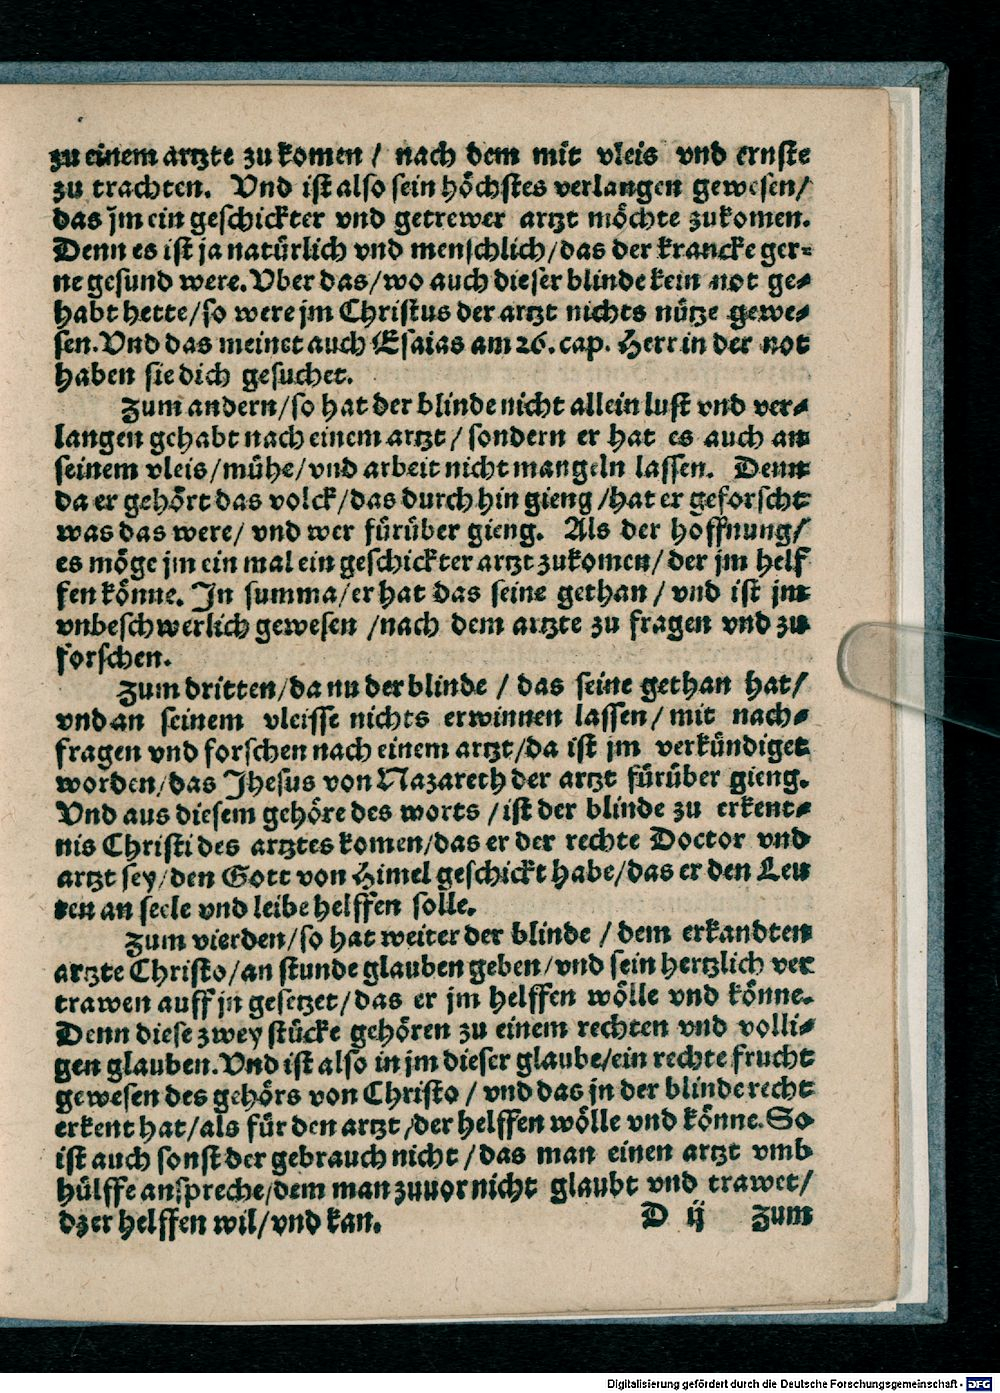 zu einem artzte zu komen / nach dem mit vleis vnd ernste
zu trachten. Vnd ist also sein höchstes verlangen gewesen/
das jm ein geschickter vnd getrewer artzt möchte zukomen.
Denn es ist ja natürlich vnd menschlich/das der krancke ger-
ne gesund were. Vber das/wo auch dieser blinde kein not ge-
habt hette/so were jm Christus der artzt nichts nütze gewe-
sen. Vnd das meinet auch Esaias am 26. cap. Herr in der not
haben sie dich gesuchet.
Zum andern/so hat der blinde nicht allein lust vnd ver-
langen gehabt nach einem artzt / sondern er hat es auch an
seinem vleis/mühe/vnd arbeit nicht mangeln lassen. Denn
da er gehört das volck/das durch hin gieng /hat er geforscht
was das were/ vnd wer fürüber gieng. Als der hoffnung/
es möge jm ein mal ein geschickter artzt zukomen/ der jm helf
fen könne. In summa/er hat das seine gethan / vnd ist jm
vnbeschwerlich gewesen /nach dem artzte zu fragen vnd zu
forschen.
Zum dritten/da nu der blinde / das seine gethan hat/
vnd an seinem vleisse nichts erwinnen lassen/ mit nach-
fragen vnd forschen nach einem artzt/da ist jm verkündiget
worden/das Jhesus von Nazareth der artzt fürüber gieng.
Vnd aus diesem gehöre des worts / ist der blinde zu erkent-
nis Christi des artztes komen/das er der rechte Doctor vnd
artzt sey/den Gott von Himel geschickt habe/das er den Leu
ten an seele vnd leibe helffen solle.
Zum vierden/so hat weiter der blinde / dem erkandten
artzte Christo/an stunde glauben geben/vnd sein hertzlich ver
trawen auff jn gesetzet/das er jm helffen wölle vnd könne.
Denn diese zwey stücke gehören zu einem rechten vnd volli-
gen glauben. Vnd ist also in jm dieser glaube/ein rechte frucht
gewesen des gehörs von Christo / vnd das jn der blinde recht
erkent hat/als für den artzt /der helffen wölle vnd könne. So
ist auch sonst der gebrauch nicht / das man einen artzt vmb
hülffe anspreche/dem man zuuor nicht glaubt vnd trawet/
dz er helffen wil/vnd kan.
D ij Zum
Digitalisierung gefördert durch die Deutsche Forschungsgemeinschaft - DFG